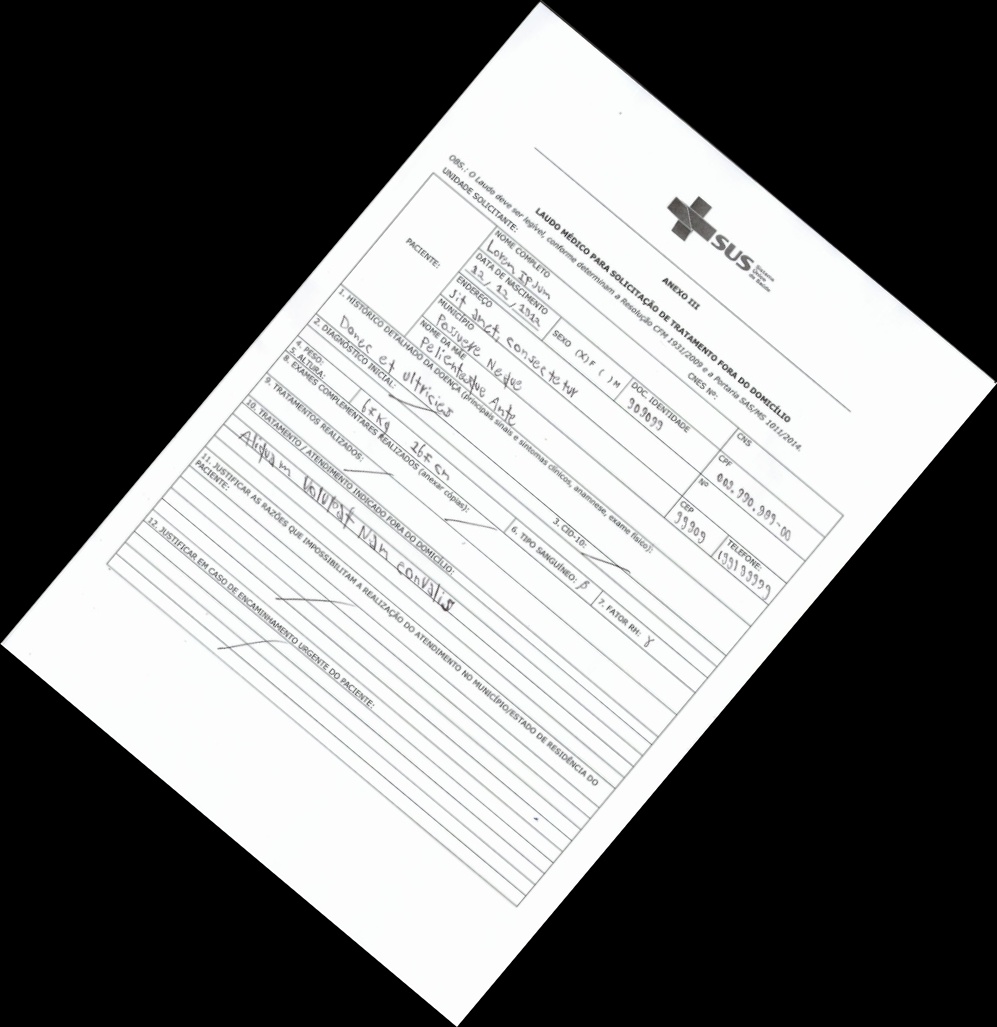 SUS Sistema Único de Saúde
ANEXO III
LAUDO MÉDICO PARA SOLICITAÇÃO DE TRATAMENTO FORA DO DOMICÍLIO
OBS.: O Laudo deve ser legível, conforme determinam a Resolução CFM 1931/2009 e a Portaria SAS/MS 1011/2014.
UNIDADE SOLICITANTE: CNES Nº:
PACIENTE:
NOME COMPLETO CNS
Lorem Ipsum
DATA DE NASCIMENTO SEXO (X) F ( ) M DOC. IDENTIDADE CPF
12/12/1912 909099 009.990.999-00
ENDEREÇO Nº
Sit Amet, consectetur
MUNICÍPIO CEP TELEFONE:
Posuere Neque 99909 (99) 99999
NOME DA MÃE
Pelientesque Ante
1. HISTÓRICO DETALHADO DA DOENÇA (principais sinais e sintomas clínicos, anamnese, exame físico):
Donec et ultricies
2. DIAGNÓSTICO INICIAL: 3. CID-10:
4. PESO: 6. TIPO SANGUÍNEO: β 7. FATOR RH: γ
5. ALTURA:
8. EXAMES COMPLEMENTARES REALIZADOS (anexar cópias):
9. TRATAMENTOS REALIZADOS:
10. TRATAMENTO / ATENDIMENTO INDICADO FORA DO DOMICÍLIO:
Aliquam Volutpat Nam convalis
11. JUSTIFICAR AS RAZÕES QUE IMPOSSIBILITAM A REALIZAÇÃO DO ATENDIMENTO NO MUNICÍPIO/ESTADO DE RESIDÊNCIA DO
PACIENTE:
12. JUSTIFICAR EM CASO DE ENCAMINHAMENTO URGENTE DO PACIENTE: